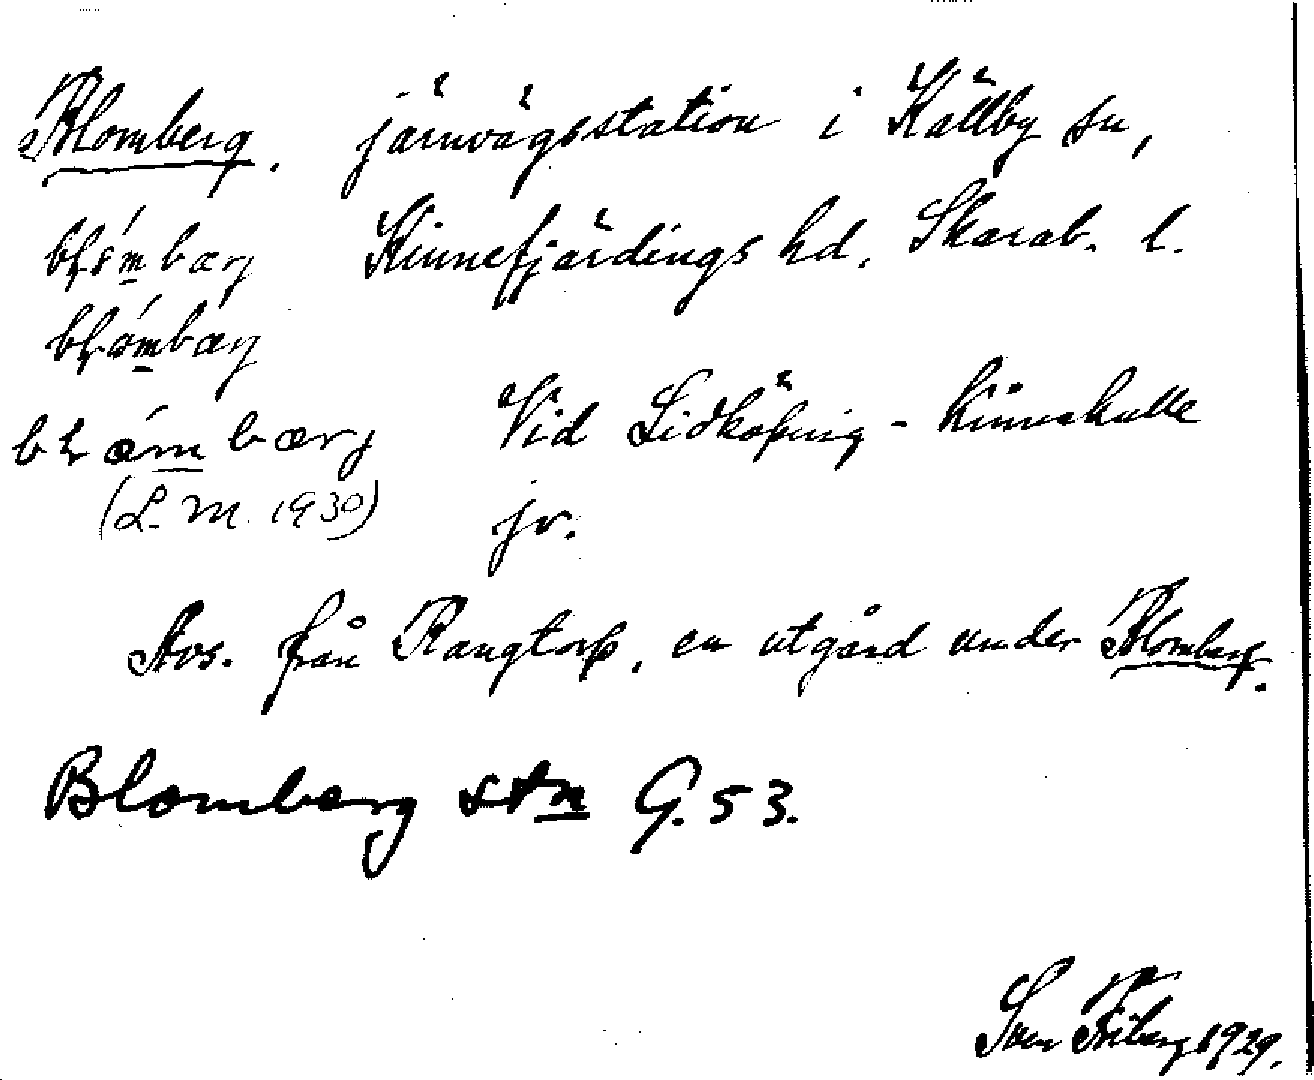 Blomberg. järnvägsstation i Källby sn,
Kinnefjärdings hd. Skarab. l.
Vid Lidköping - Kinnekulle
(L. M. 1930)
jv.
Avs. från Rangtorp, en utgård under Blomberg.
Blomberg stn G. 53.
Sven Friberg 1929.